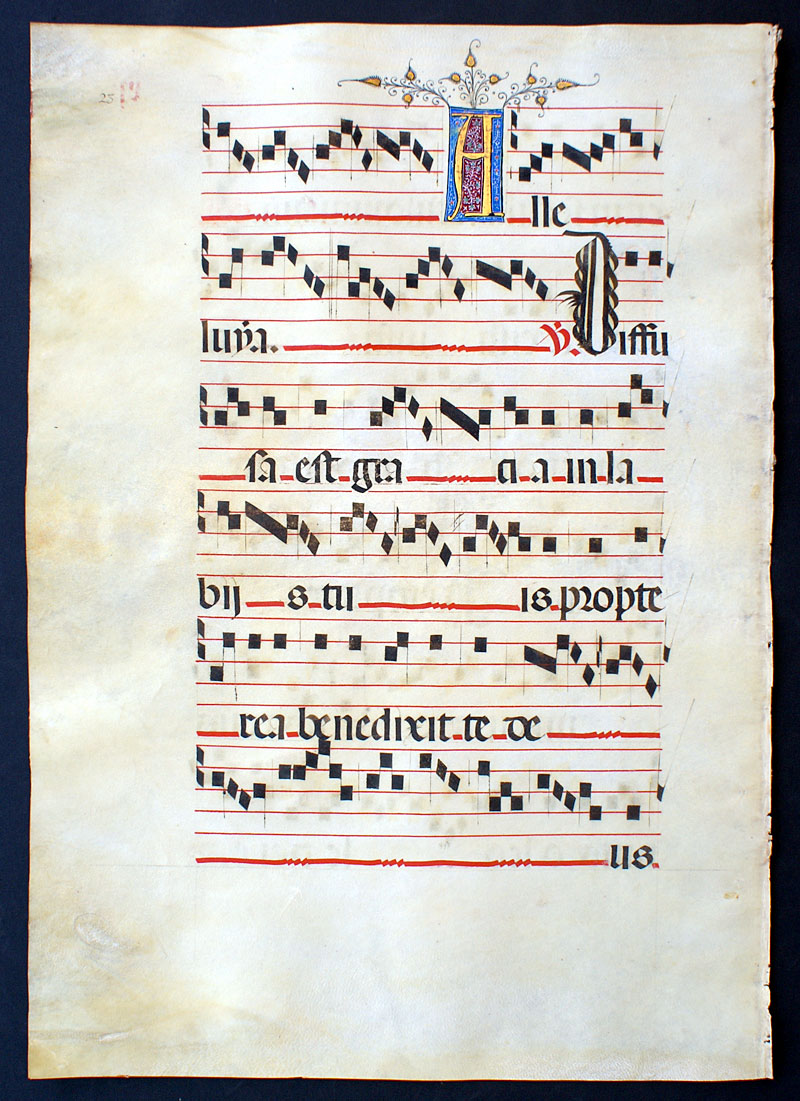 25
Alle
luẏa. ℣. Diffu
sa est gra ci a in la
bij s tu is propte
rea benedixit te de
us.